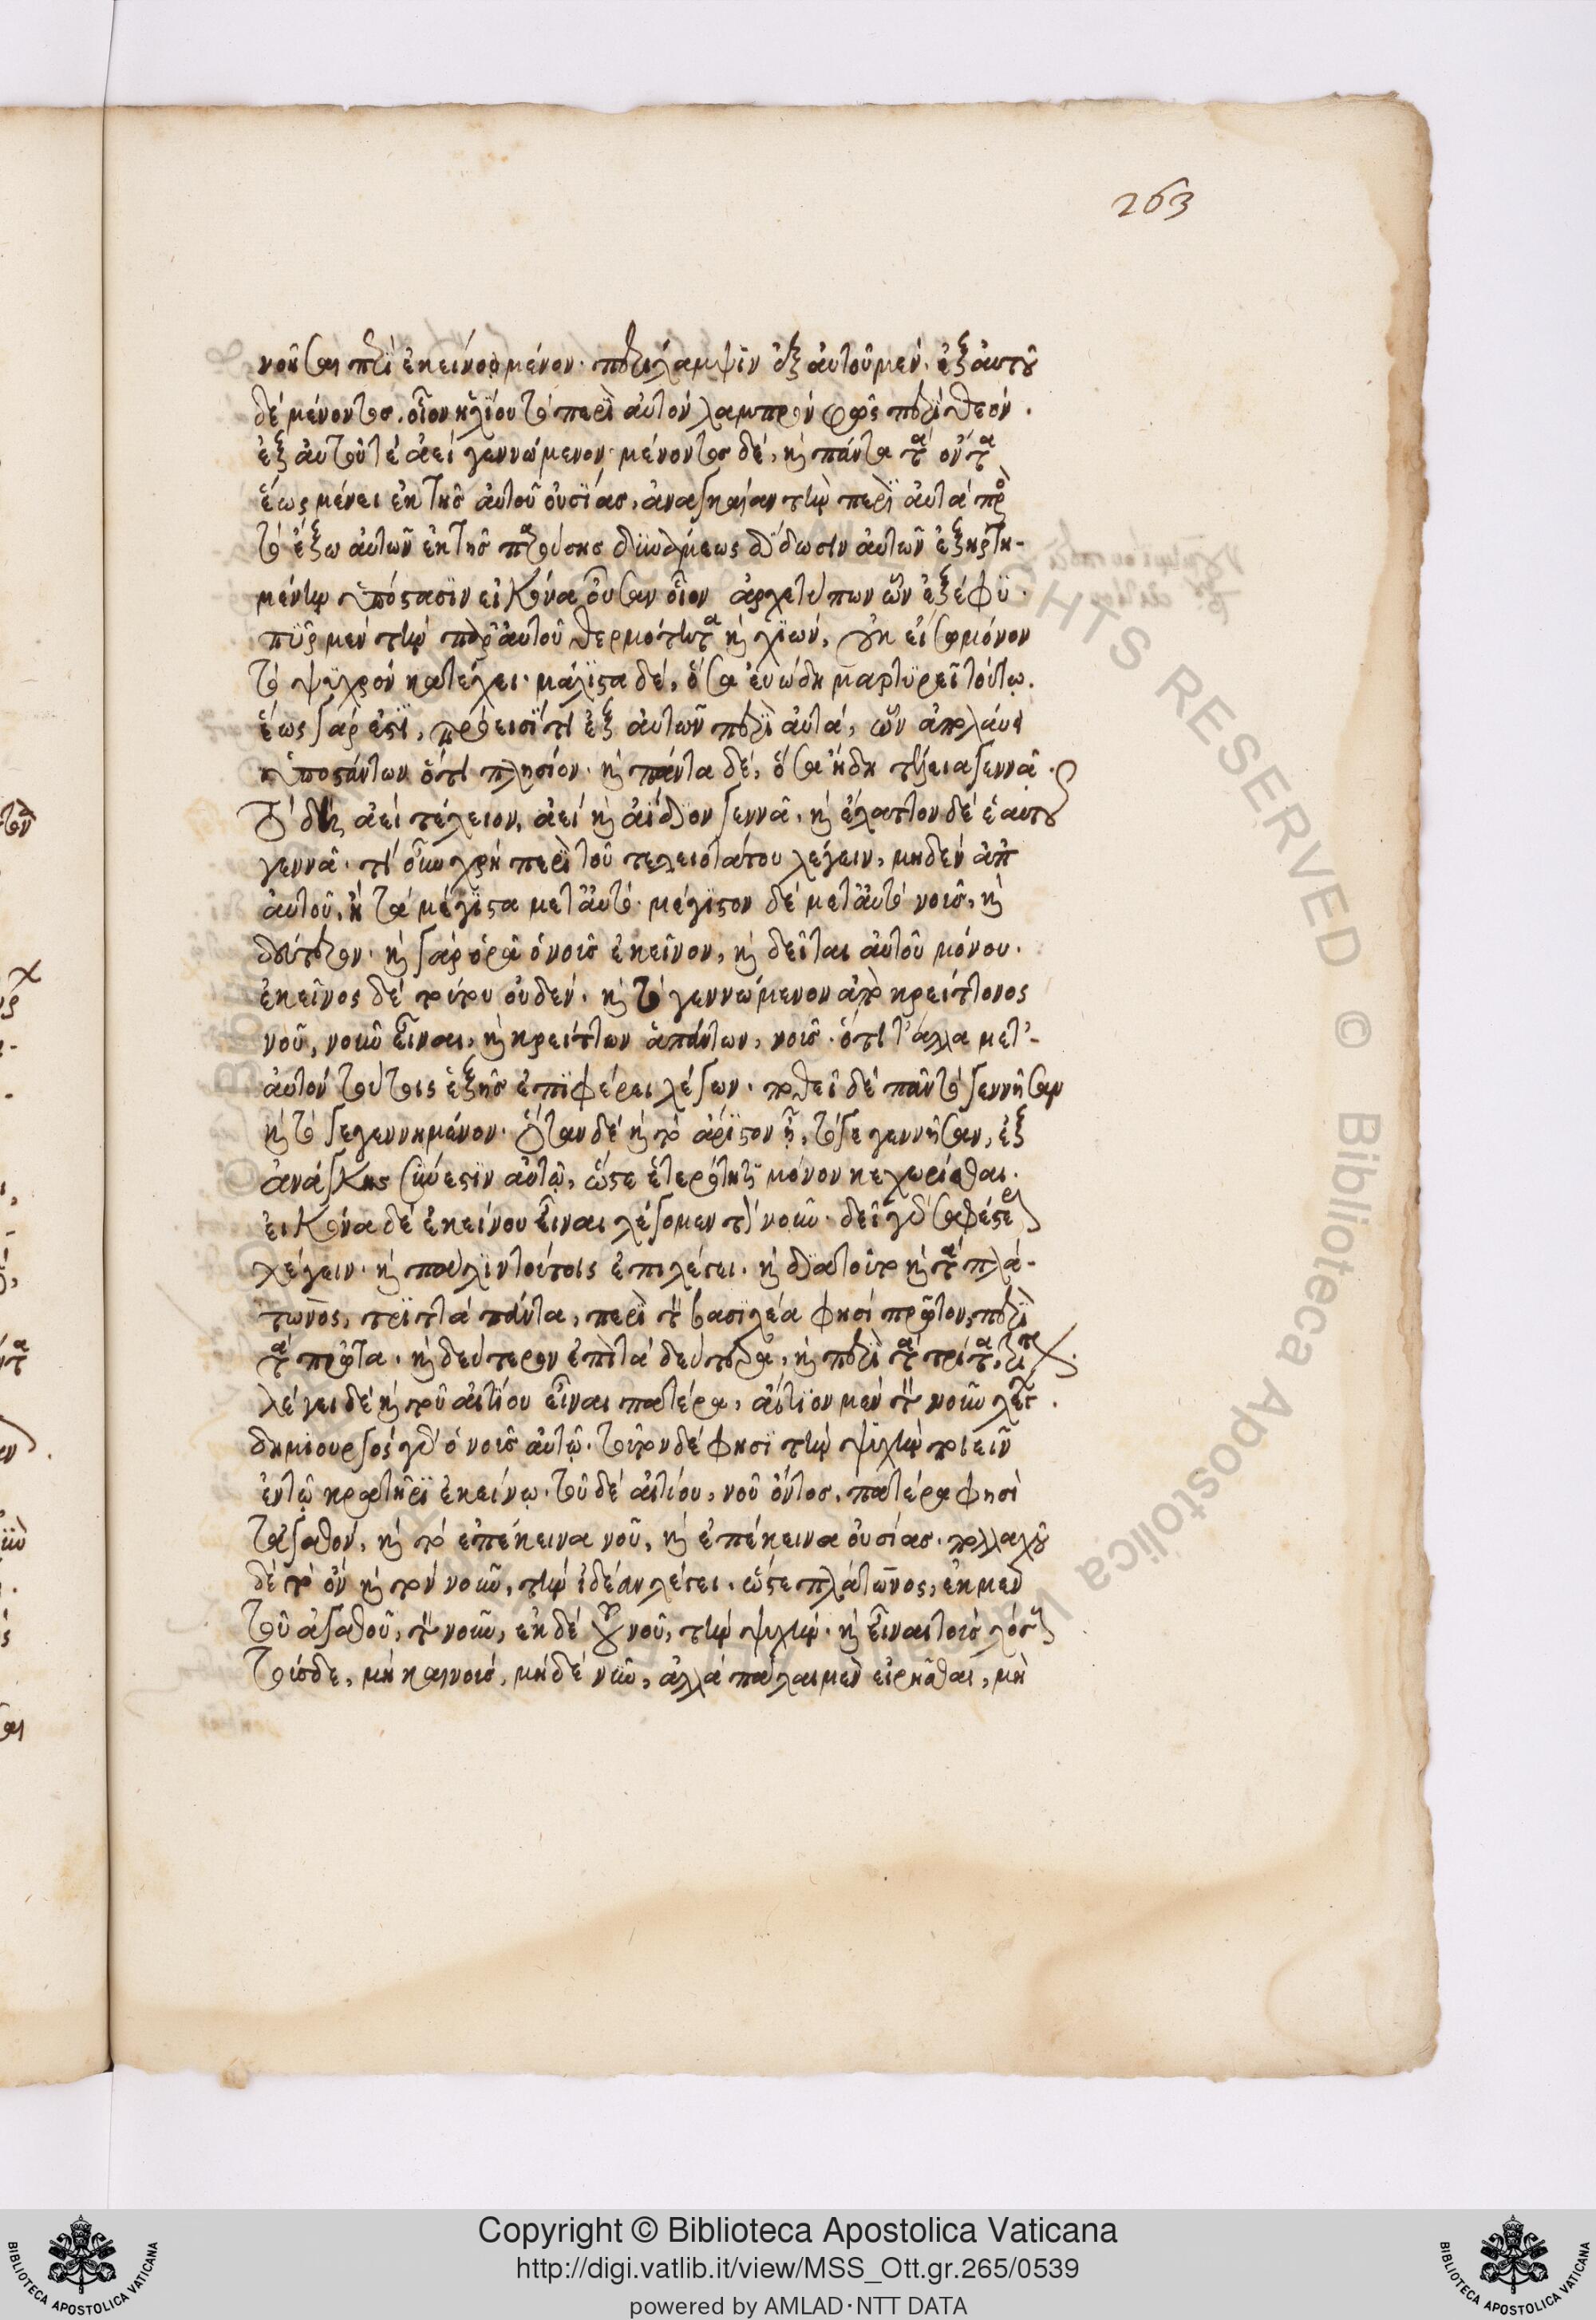 νοῦσαι περὶ ἐκεῖνο μένον. περίλαμψιν ἐξ αὐτοῦ μέν. ἐξ αὐτοῦ
δέ μένοντος. οἷον ἡλίου τό περὶ αὐτόν λαμπρόν φῶς περιθέον.
ἐξ αὐτοῦ τέ ἀεί γεννώμενον· μένοντος δέ, καὶ πάντα τὰ ὄντα
ἕως μένει ἐκ τῆς αὐτοῦ οὐσίας, ἀναγκαίαν τὴν περὶ αὐτά πρὸς
τό ἔξω αὐτῶν ἐκ τῆς παρούσης δυνάμεως δίδωσιν αὐτῶν ἐξηρτη-
μένην ὑπόστασιν εἰκόνα οὖσαν οἷον ἀρχετύπων ὧν ἐξέφυ.
πῦρ μέν τὴν παρ' αὐτοῦ θερμότητα καὶ χιών, οὐκ εἴσω μόνον
τό ψυχρόν κατέχει· μάλιστα δέ, ὅσα εὐώδη μαρτυρεῖ τούτῳ.
ἕως γάρ ἐστι, πρόεισί τι ἐξ αὐτῶν περὶ αὐτά, ὧν ἀπολάυει
ὑποστάντων ὅτι πλησίον. καὶ πάντα δέ, ὅσα ἤδη τέλεια γεννᾶ.
Τό δή ἀεί τέλειον, ἀεί καὶ ἀΐδιον γεννᾶ. καὶ ἔλαττον δέ ἑαυτοῦ
γεννᾶ. τί οὖν χρή περὶ τοῦ τελειοτάτου λέγειν, μηδέν ἀπ'
αὐτοῦ, ἢ τά μέγιστα μετ' αὐτό. μέγιστον δέ μετ' αὐτό νοῦς, καὶ
δεύτερον. καὶ γάρ ὁρᾶ ὁ νοῦς ἐκεῖνον, καὶ δεῖται αὐτοῦ μόνου.
ἐκεῖνος δέ τούτου οὐδέν. καὶ τό γεννώμενον ἀπὸ κρείττονος
νοῦ, νοῦν εἶναι, καὶ κρείττων ἁπάντων, νοῦς. ὅτι τ' ἄλλα μετ'-
αὐτόν τούτοις ἑξῆς ἐπιφέρει λέγων. ποθεῖ δέ πᾶν τό γεννῆσαν
καὶ τό γεγεννημένον. Ὅταν δέ καὶ τὸ ἄριστον ᾖ, τό γε γεννῆσαν, ἐξ
ἀνάγκης σύνεστιν αὐτῷ, ὥστε ἑτερότητι μόνον κεχωρίσθαι.
εἰκόνα δέ ἐκείνου εἶναι λέγομεν τὸν νοῦν. δεῖ γὰρ σαφέστερον
λέγειν. καὶ πάλιν τούτοις ἐπιλέγει. καὶ διατοῦτο καὶ τὰ πλά-
τωνος, τριττά πάντα, περὶ τὸν βασιλέα φησί πρῶτον, περὶ
τὰ πρῶτα. καὶ δεύτερον ἐπὶ τά δεύτερα, καὶ περὶ τὰ τρίτα, τρίτον.
λέγει δέ καὶ τοῦ αἰτίου εἶναι πατέρα, αἴτιον μέν τὸν νοῦν λέγων.
δημιουργός γὰρ ὁ νοῦς αὐτῷ. τοῦτον δέ φησι τὴν ψυχὴν ποιεῖν
ἐν τῷ κρατῆρι ἐκείνῳ. τοῦ δέ αἰτίου, νοῦ ὄντος, πατέρα φησὶ
τἀγαθόν, καὶ τὸ ἐπέκεινα νοῦ, καὶ ἐπέκεινα οὐσίας. πολλαχοῦ
δέ τὸ ὄν καὶ τὸν νοῦν, τὴν ἰδέαν λέγει. ὥστε πλάτωνος, ἐκ μέν
τοῦ ἀγαθοῦ, τὸν νοῦν, ἐκ δέ τοῦ νοῦ, τὴν ψυχὴν. καὶ εἶναι τοὺς λόγους
τούσδε, μή καινούς, μήδέ νῦν, ἀλλά πάλαι μέν εἰρῆσθαι, μὴ
263
Copyright © Biblioteca Apostolica Vaticana
http://digi.vatlib.it/view/MSS_Ott.gr.265/0539
powered by AMLAD·NTT DATA
BIBLIOTECA APOSTOLICA VATICANA
BIBLIOTECA APOSTOLICA VATICANA